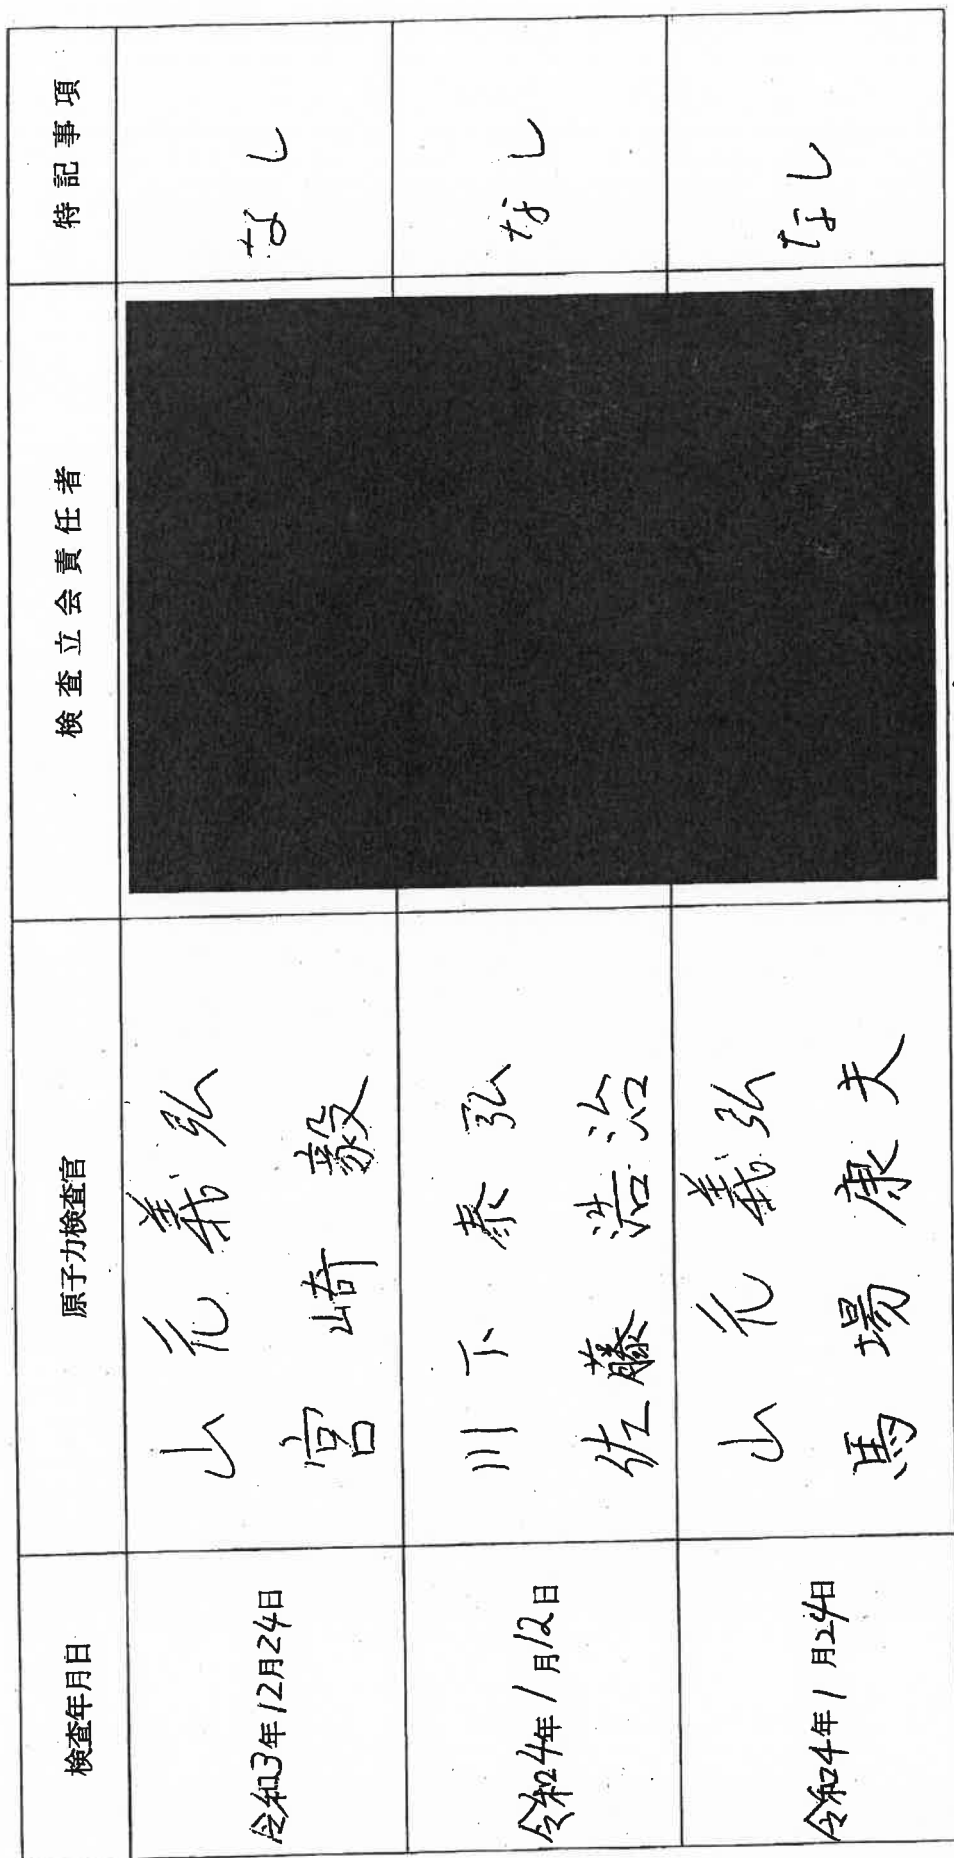 検査年月日
原子力検査官
検査立会責任者
特記事項
令和3年12月24日
山元義弘
宮崎毅
なし
令和4年1月12日
川下泰弘
佐藤浩治
なし
令和4年1月24日
山元義弘
馬場康夫
なし